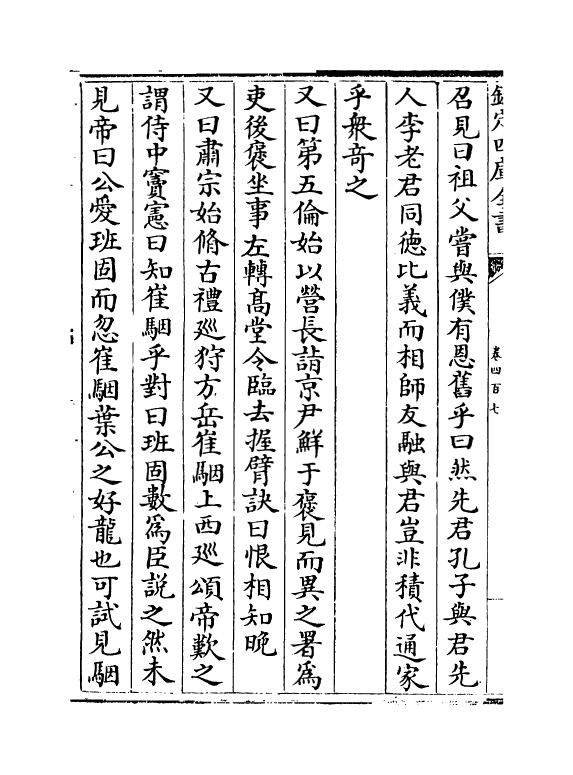 欽定四庫全書
卷四百七
召見曰祖父嘗與僕有恩舊乎曰然先君孔子與君先
人李老君同徳比義而相師友融與君豈非積代通家
乎衆竒之
又曰第五倫始以營長詣京尹鮮于襃見而異之署爲
吏後襃坐事左轉髙堂令臨去握臂訣曰恨相知晩
又曰肅宗始脩古禮廵狩方岳崔駰上西廵頌帝歎之
謂侍中竇憲曰知崔駰乎對曰班固數爲臣説之然未
見帝曰公愛班固而忽崔駰葉公之好龍也可試見駰